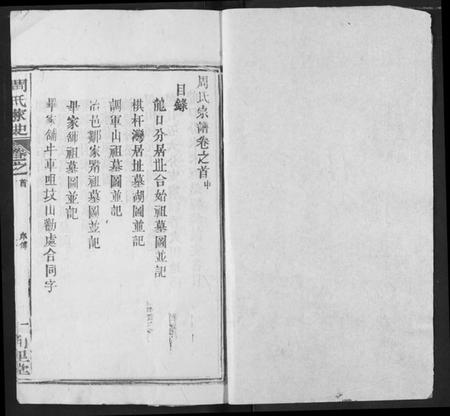 周氏宗譜卷之首中
目錄
龍口分居址合始祖墓圖並記
棋杆灣居址墓湖圖並記
調軍山祖墓圖並記
冶邑鄒家嘴祖墓圖並記
畢家舖祖墓圖並記
畢家舖井車咀扶山勸處合同字
周氏家史
卷之首